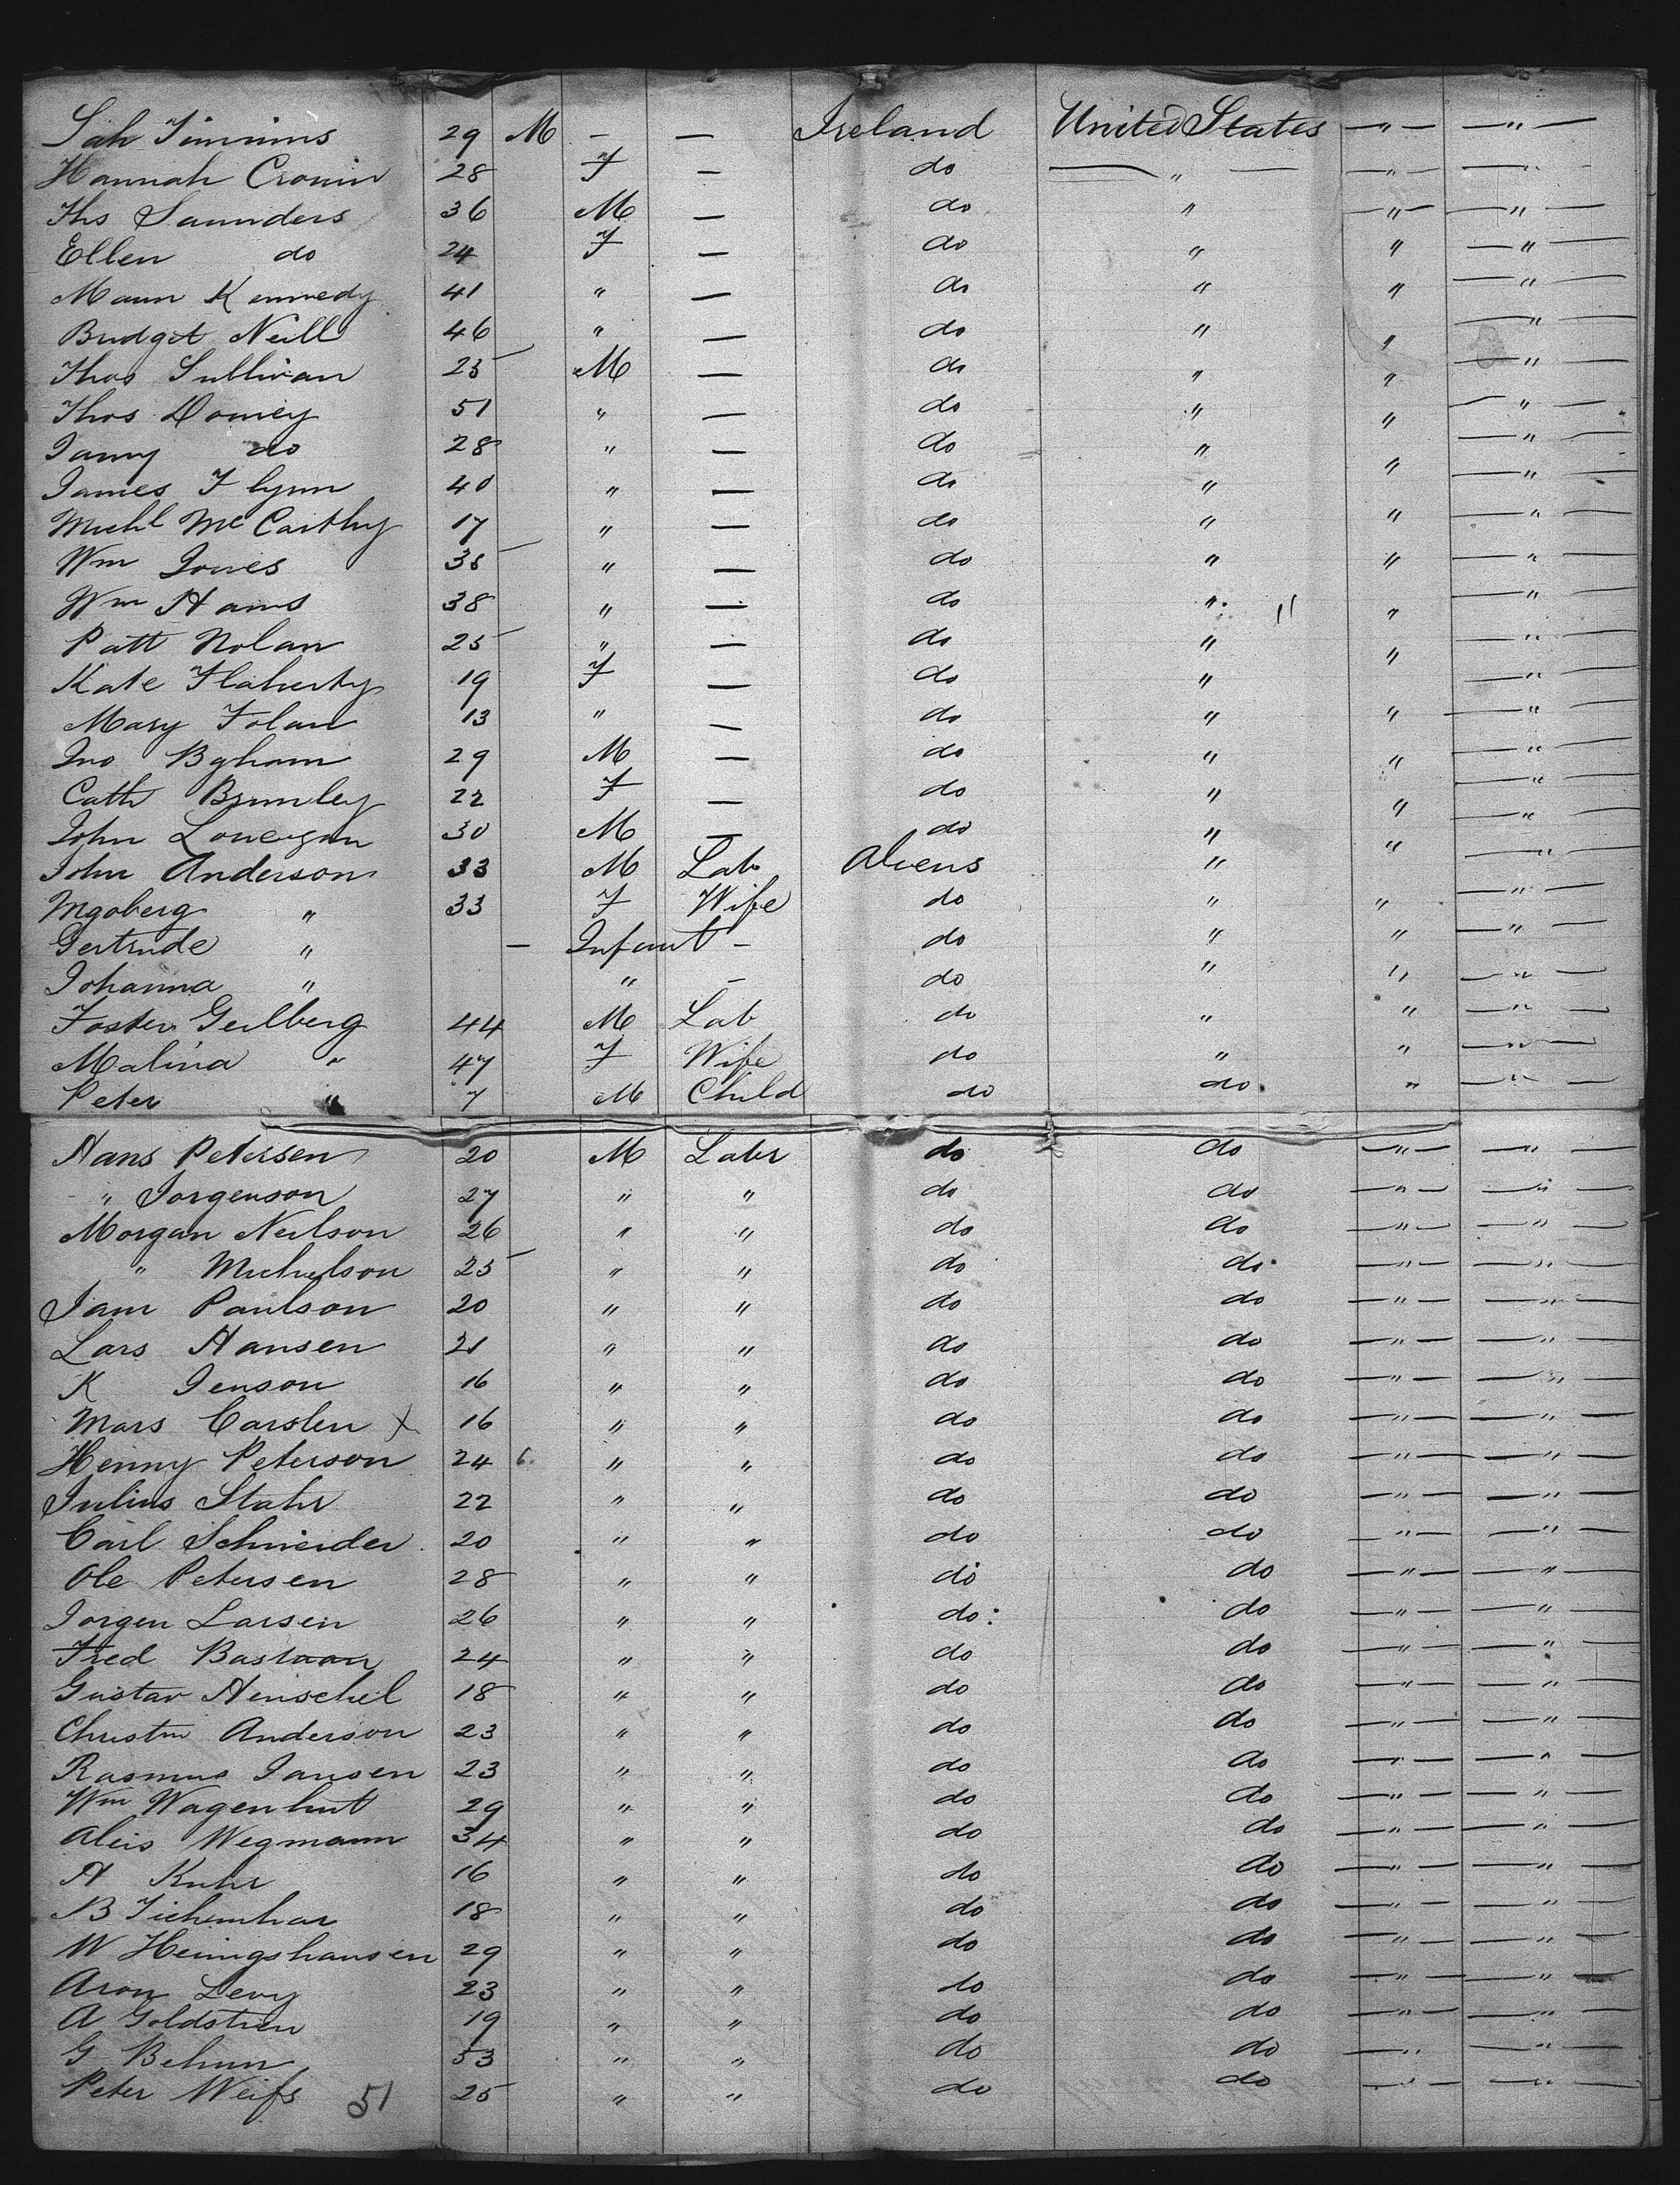 Timmins 29 M — — Ireland United States —"— —"—
Hannah Cronin 28 F — do — " — —"— —"—
Ths Saunders 36 M — do " —"— —"—
Ellen do 24 F — do " " —"—
Maun Kennedy 41 " — do " " —"—
Bridget Neill 46 " — do " " —"—
Thos Sullivan 25 M — do " " —"—
Thos Domey 51 " — do " " —"—
Jamy do 28 " — do " " —"—
James Flynn 40 " — do " —"—
Michl McCarthy 17 " — do " " —"—
Wm Jones 35 " — do " " —"—
Wm Hams 38 " — do " " " —"—
Patt Nolan 25 " — do " " —"—
Kate Flaherty 19 F — do " —"—
Mary Folan 13 " — do " " —"—
Jno Bgham 29 M — do " " —"—
Cath Brumley 22 F — do " " —"—
John Lonergan 30 M — do " " —"—
John Anderson 33 M Lab Aliens " —"—
Ingoberg " 33 F Wife do " " —"—
Gertrude " — Infant — do " " —"—
Johanna " " — do " " —"—
Foster Geilberg 44 M Lab do " " —"—
Malina " 47 F Wife do " " —"—
Peter " 7 M Child do do " —"—
Hans Petersen 20 M Labr do do —"— —"—
" Jorgenson 27 " " do do —"— —"—
Morgan Neilson 26 " " do do —"— —"—
" Michelson 25 " " do do —"— —"—
Jam Paulson 20 " " do do —"— —"—
Lars Hansen 21 " " do do —"— —"—
K Jenson 16 " " do do —"— —"—
Mars Carsten x 16 " " do do —"— —"—
Henny Peterson 24 " " do do —"— —"—
Julius Stahr 22 " " do do —"— —"—
Carl Schneider 20 " " do do —"— —"—
Ole Petersen 28 " " do do —"— —"—
Jorgen Larsen 26 " " do do —"— —"—
Fred Bastaan 24 " " do do —"— —"—
Gustav Henschel 18 " " do do —"— —"—
Christn Anderson 23 " " do do —"— —"—
Rasmus Jansen 23 " " do do —"— —"—
Wm Wagenhut 29 " " do do —"— —"—
Aleis Wegmann 34 " " do do —"— —"—
H Kuhr 16 " " do do —"— —"—
B 18 " " do do —"— —"—
W Heningshausen 29 " " do do —"— —"—
Aron Levy 23 " " do do —"— —"—
A Goldstien 19 " " do do —"— —"—
G Behun 53 " " do do —"— —"—
Peter Weifs 51 25 " " do do —"— —"—